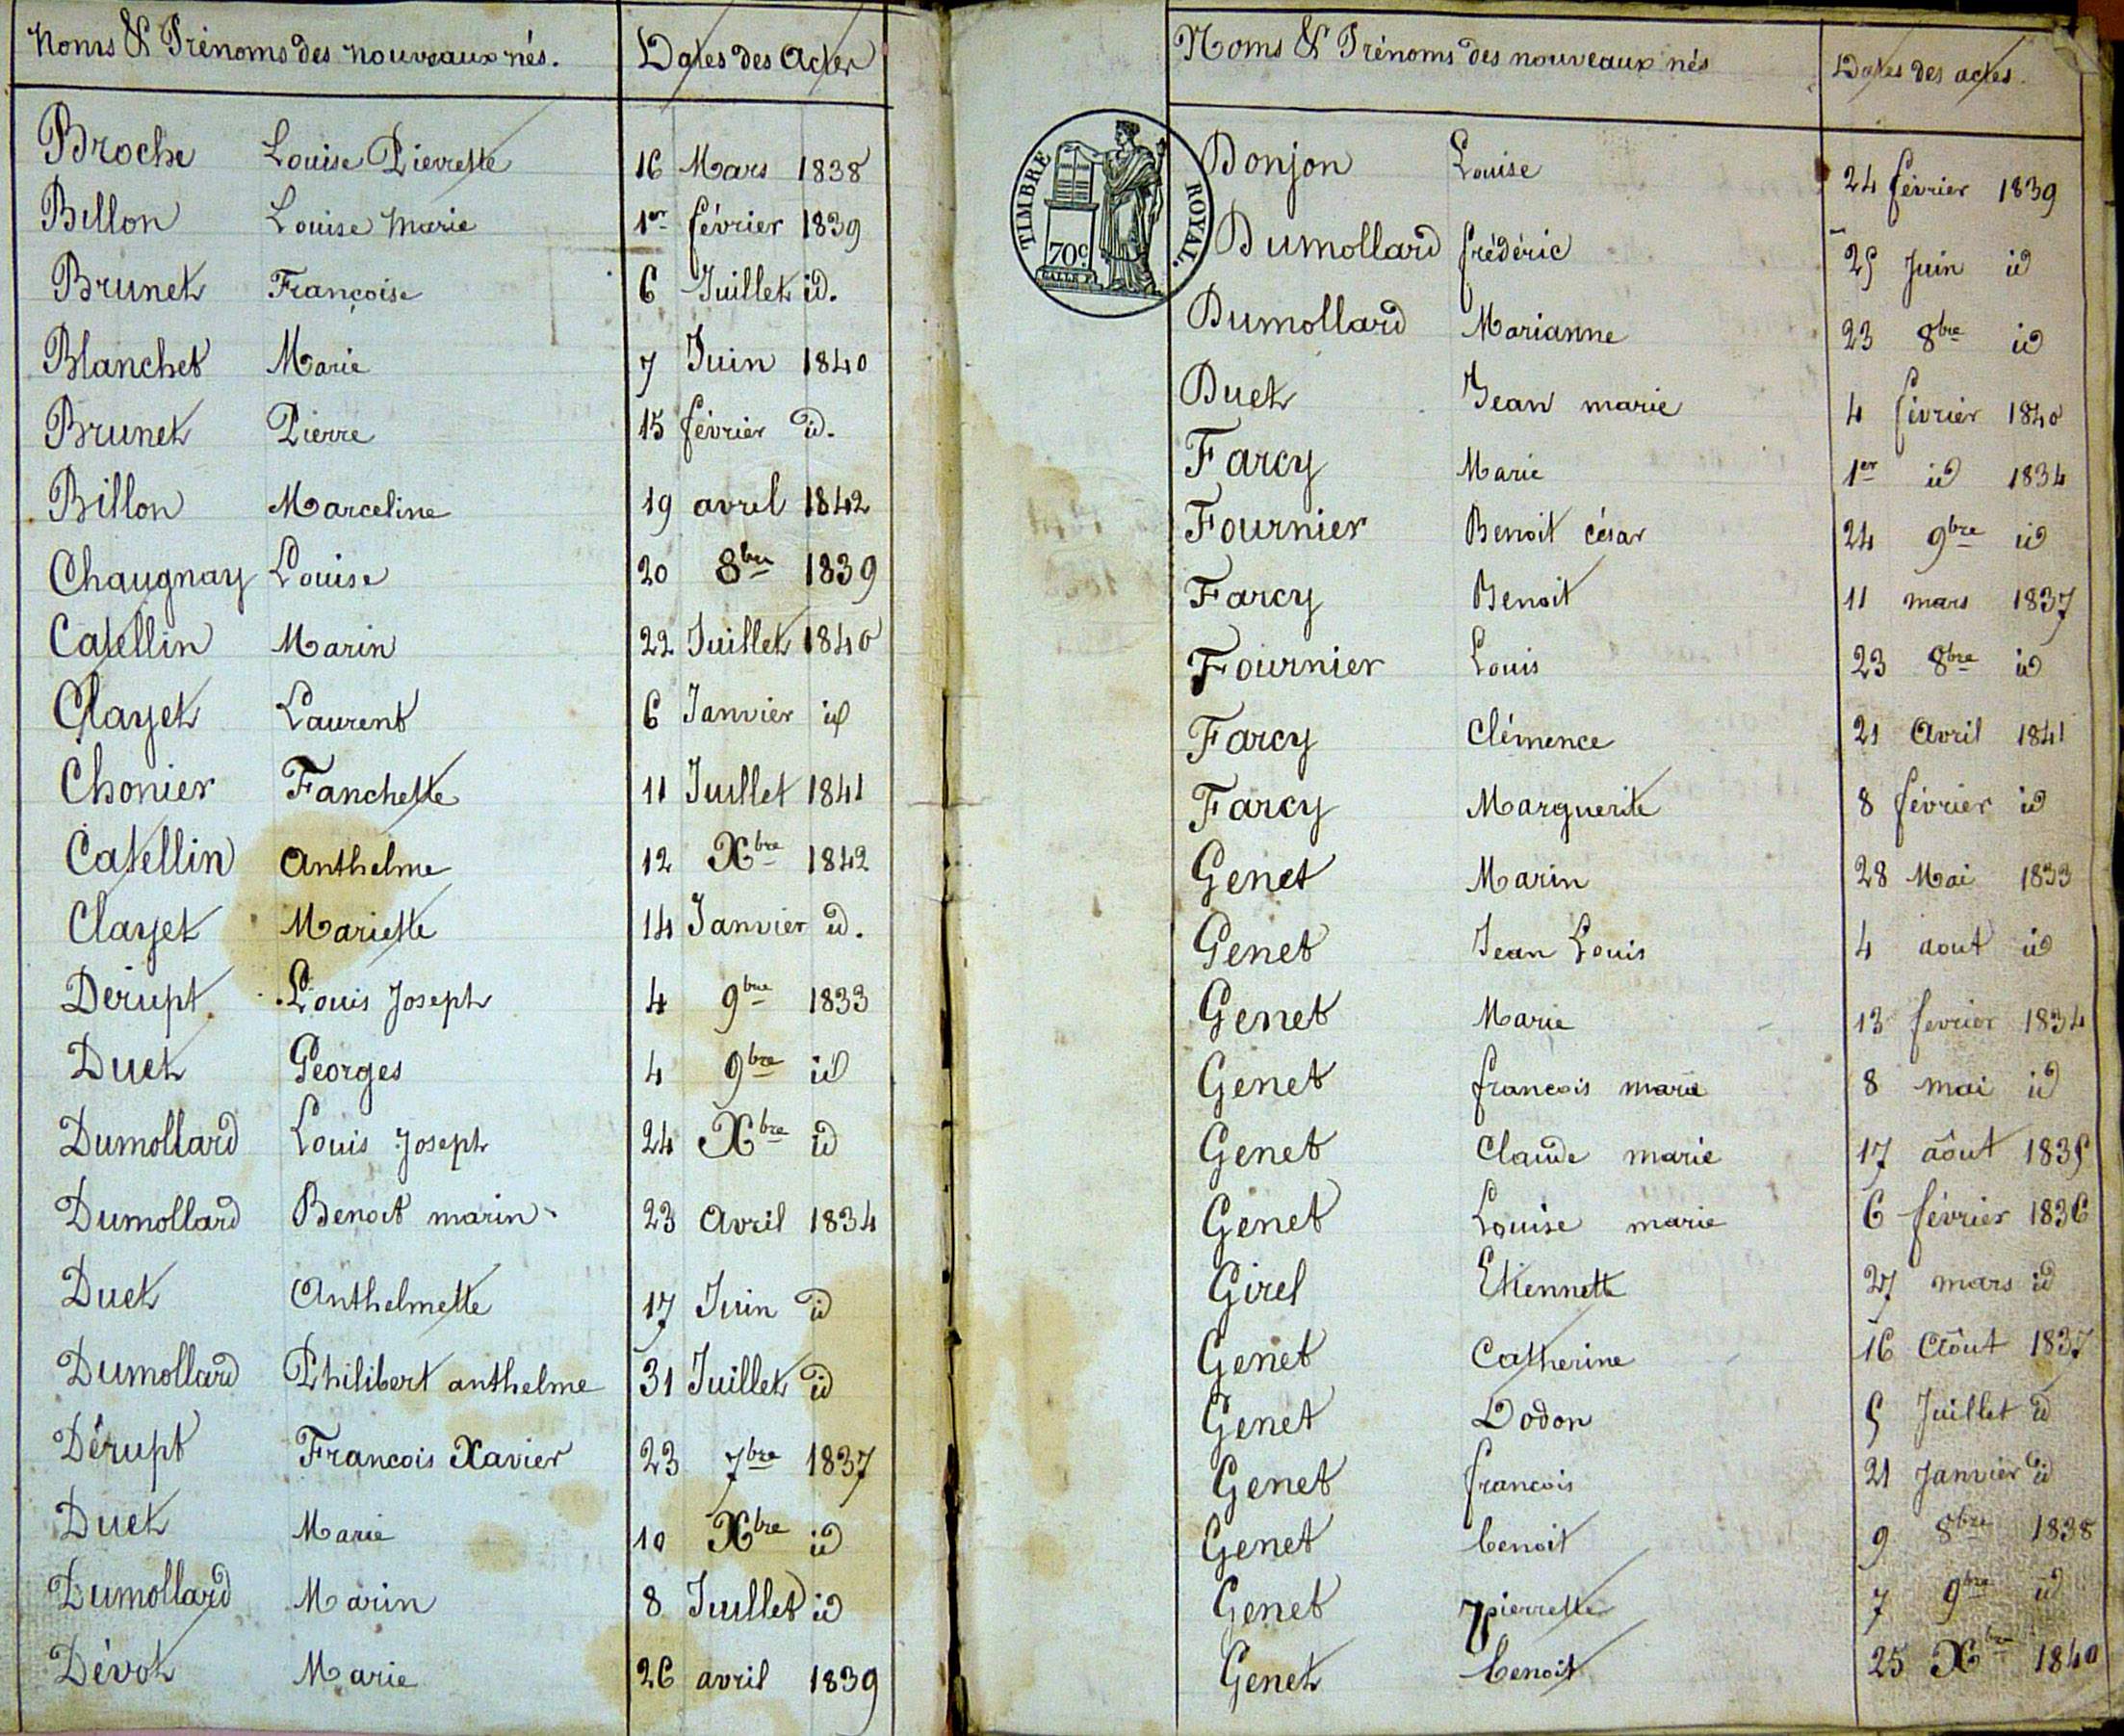 Noms & Prénoms des nouveaux nés. Dates des Actes
Broche Louise Pierrette 16 Mars 1838
Billon Louise Marie 1er février 1839
Brunet Françoise 6 Juillet id.
Blanchet Marie 7 Juin 1840
Brunet Pierre 15 février id.
Billon Marceline 19 avril 1842
Chaugnay Louise 20 8bre 1839
Catellin Marin 22 Juillet 1840
Clayet Laurent 6 Janvier id
Chonier Fanchette 11 Juillet 1841
Catellin Anthelme 12 Xbre 1842
Clayet Mariette 14 Janvier id.
Dérupt Louis Joseph 4 9bre 1833
Duet Georges 4 9bre id
Dumollard Louis Joseph 24 Xbre id
Dumollard Benoit marin 23 Avril 1834
Duet Anthelmette 17 Juin id
Dumollard Philibert anthelme 31 Juillet id
Dérupt Francois Xavier 23 7bre 1837
Duet Marie 10 Xbre id
Dumollard Marin 8 Juillet id
Dévot Marie 26 avril 1839
Noms & Prénoms des nouveaux nés Dates des actes.
TIMBRE ROYAL.
70c
Donjon Louise 24 février 1839
Dumollard frédéric 25 Juin id
Dumollard Marianne 23 8bre id
Duet Jean marie 4 février 1840
Farcy Marie 1er id 1834
Fournier Benoit césar 24 9bre id
Farcy Benoit 11 mars 1837
Fournier Louis 23 8bre id
Farcy Clémence 21 Avril 1841
Farcy Marguerite 8 février id
Genet Marin 28 Mai 1833
Genet Jean Louis 4 aout id
Genet Marie 13 fevrier 1834
Genet francois marie 8 mai id
Genet Claude marie 17 aôut 1835
Genet Louise marie 6 février 1836
Girel Etiennette 27 mars id
Genet Catherine 16 Aôut 1837
Genet Dodon 5 Juillet id
Genet francois 21 Janvier id
Genet benoit 9 8bre 1838
Genet pierrette 7 9bre id
Genet benoit 25 Xbre 1840